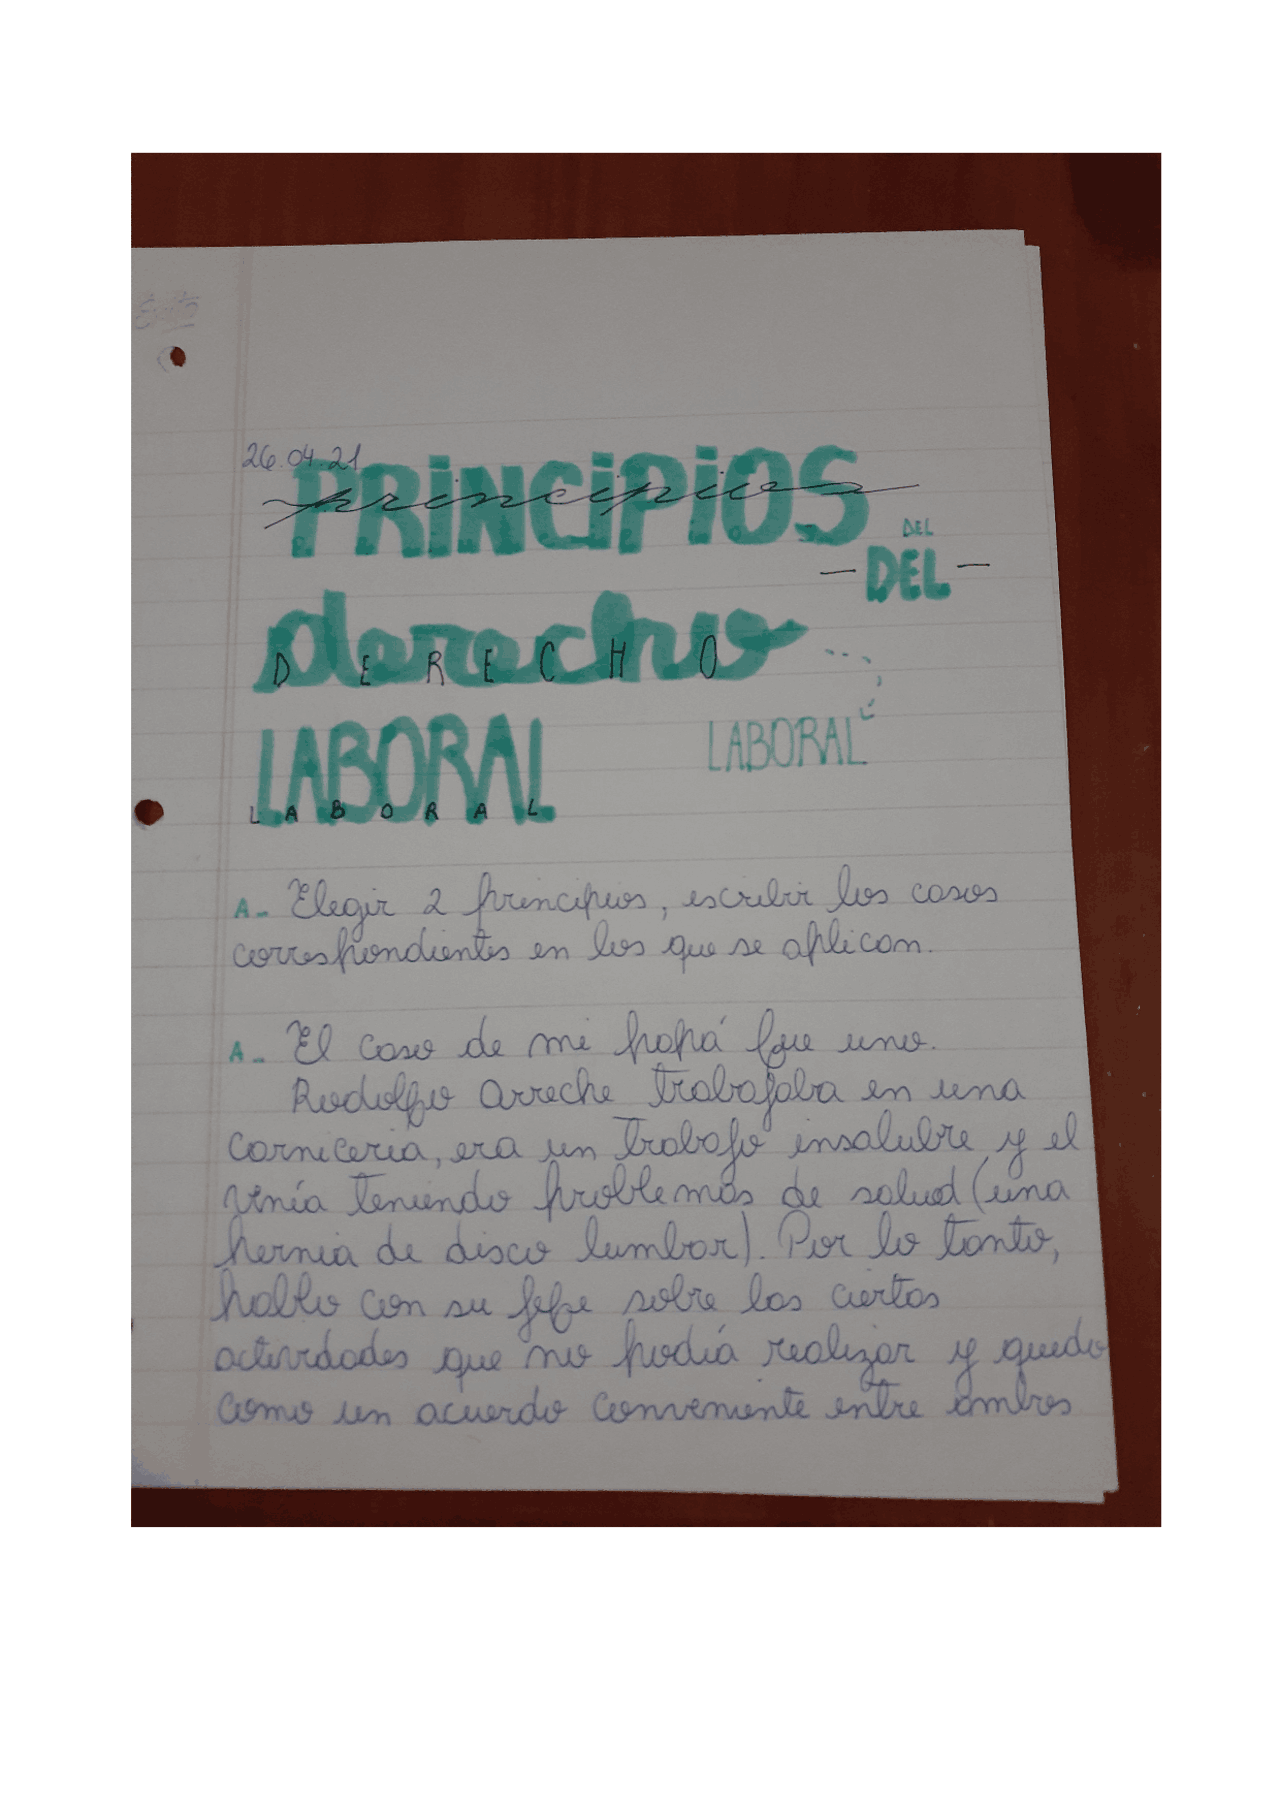 26.04.21
PRINCIPIOS
principios
DEL
- DEL -
derecho
D E R E C H O
LABORAL
LABORAL
L A B O R A L
A.. Elegir 2 principios, escribir los casos
correspondientes en los que se aplican.
A.. El caso de mi papá fue uno.
Rodolfo Arreche trabajaba en una
carniceria, era un trabajo insalubre y el
venía teniendo problemas de salud (una
hernia de disco lumbar). Por lo tanto,
hablo con su jefe sobre las ciertas
actividades que no podía realizar y quedo
como un acuerdo conveniente entre ambos